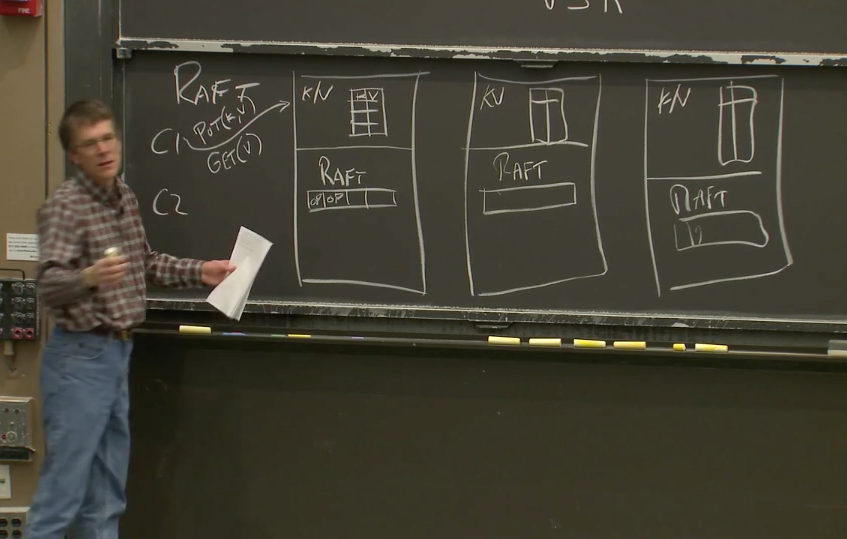 VSR
RAFT
C1
PUT(K,V)
GET(V)
C2
K/V
K V
RAFT
OP OP
KV
RAFT
K/V
RAFT
FIRE